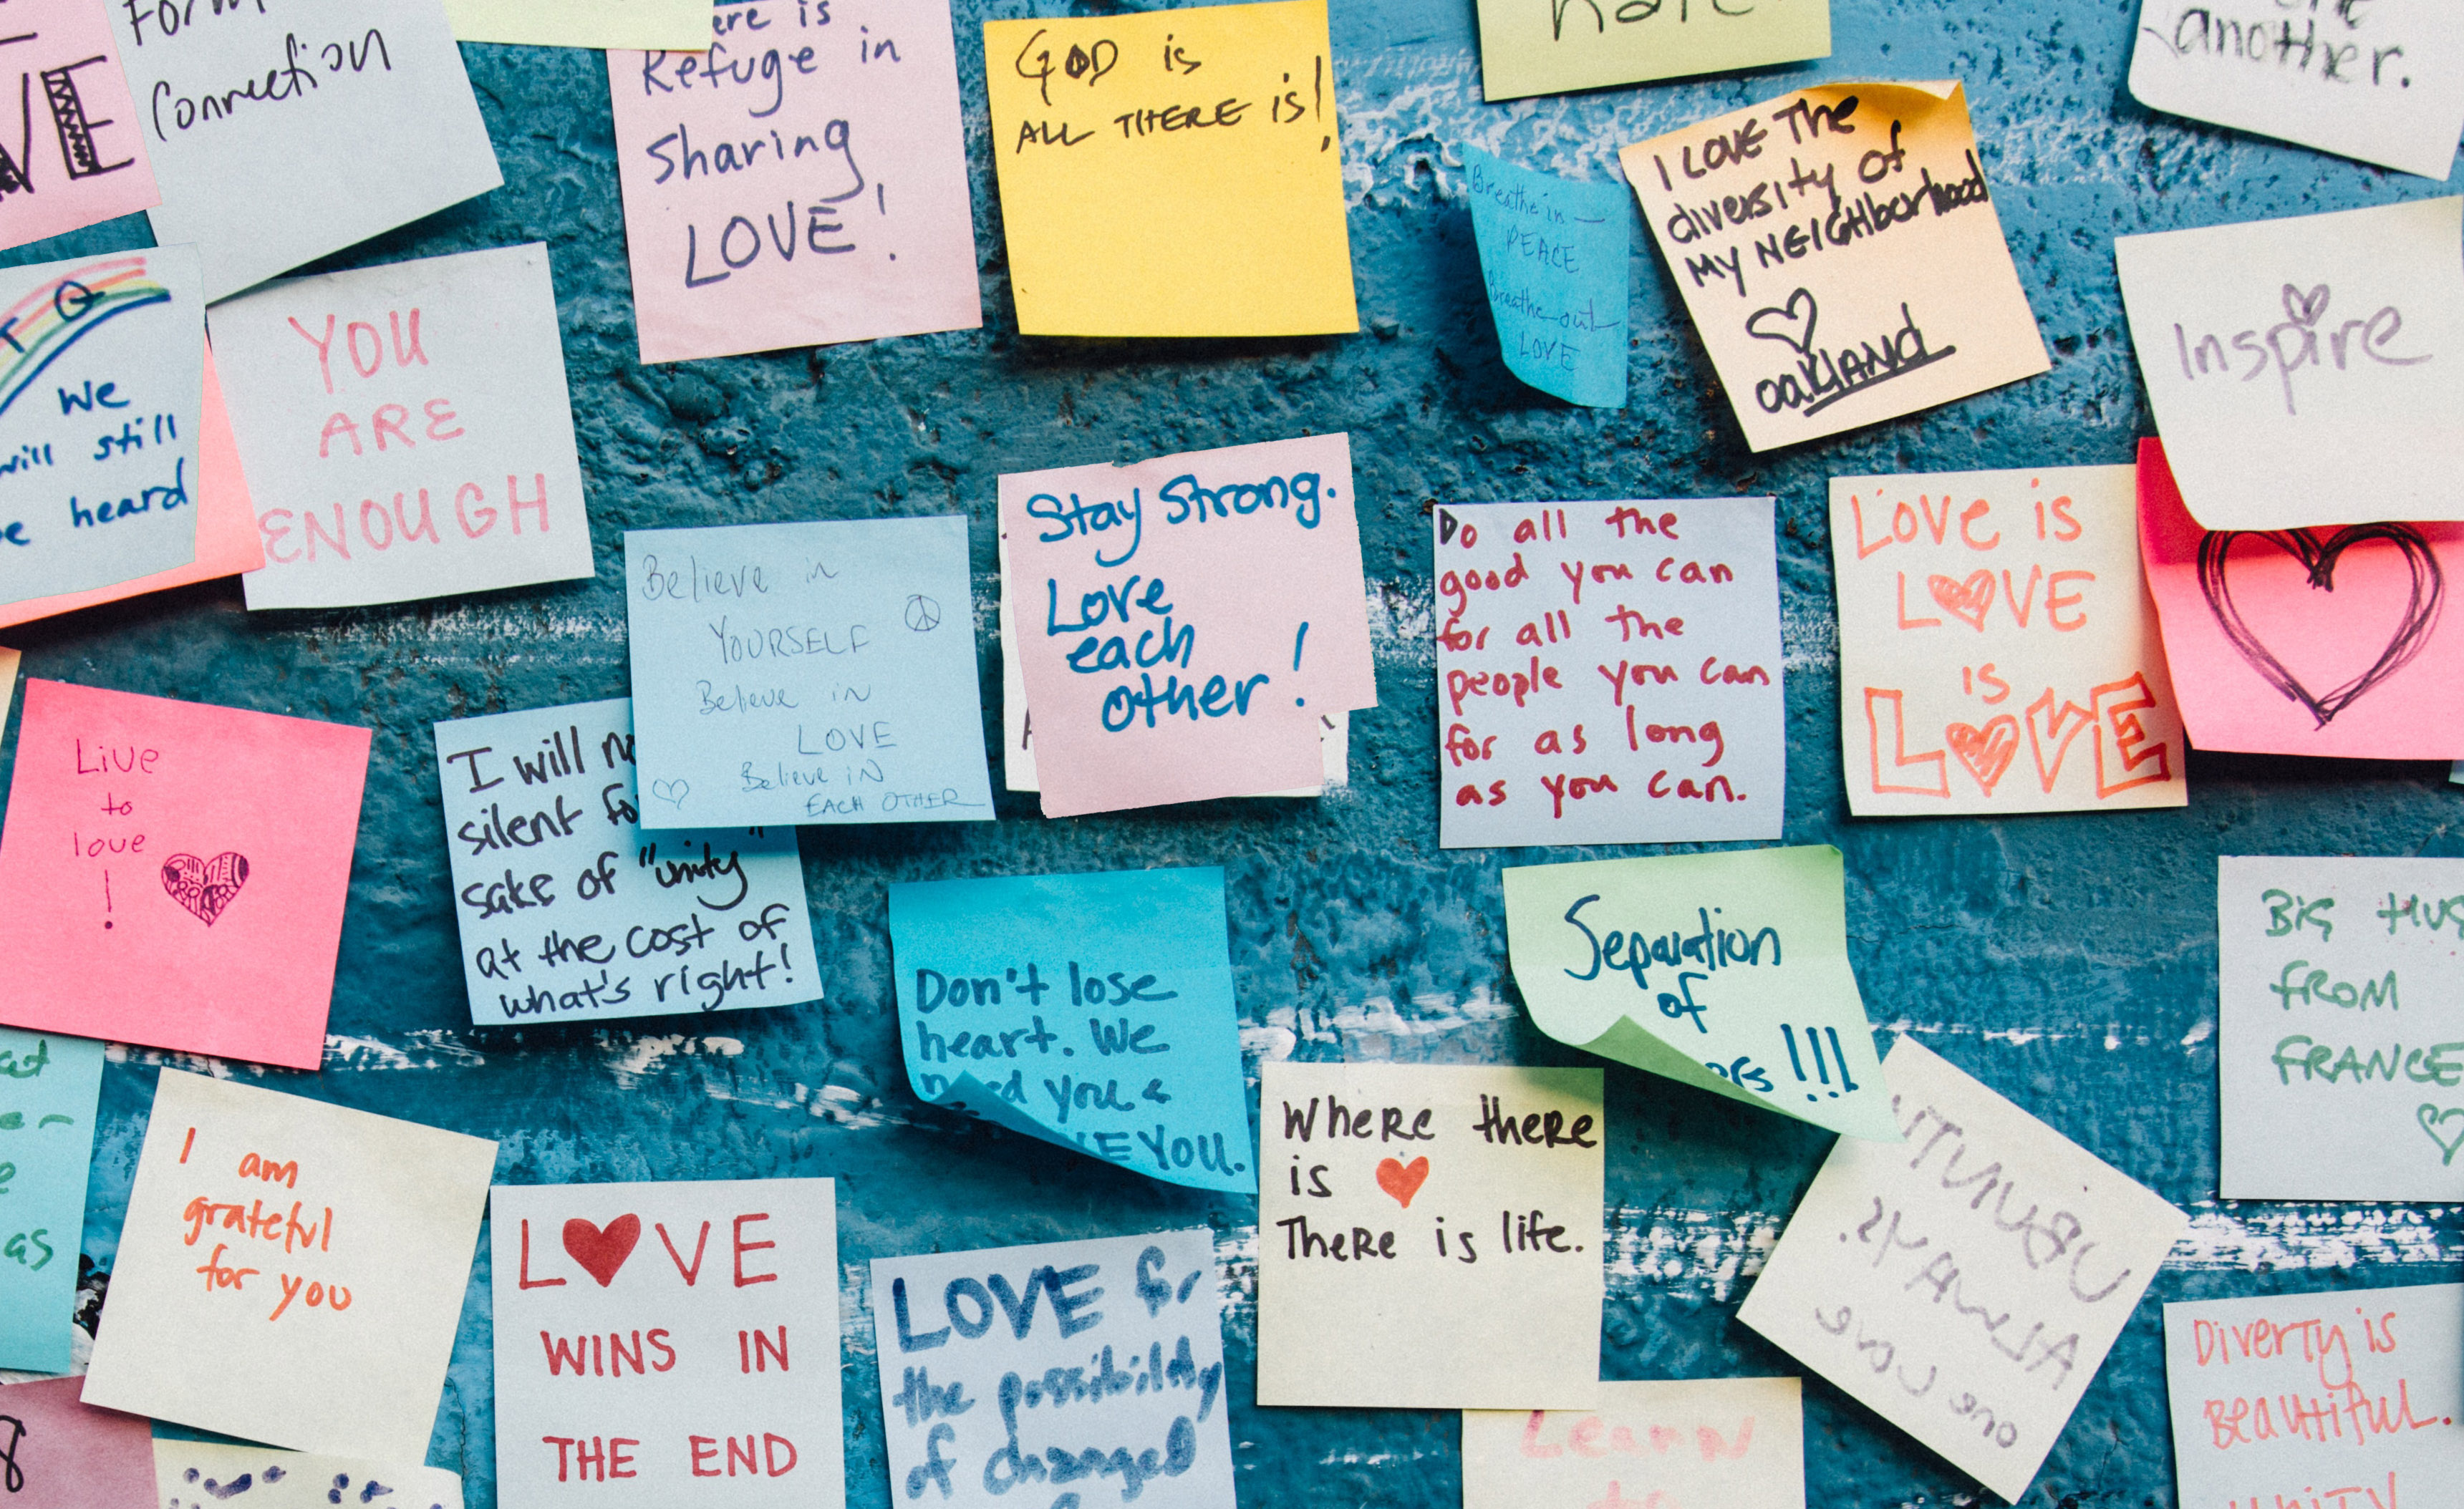 VE
Form
Connection
Refuge in
sharing
LOVE!
GOD is
ALL THERE is!
Breathe in —
PEACE
Breathe out
LOVE
I LOVE The
diversity of
MY NEIGHborhood
oaklAND
another.
Inspire
We
will still
heard
YOU
ARE
ENOUGH
Believe in
YOURSELF
Believe in
LOVE
Believe iN
EACH OTHER
Stay Strong.
Love
each
other!
Do all the
good you can
for all the
people you can
for as long
as you can.
Love is
LOVE
is
LOVE
Live
to
love
!
I will
silent
sake of "unity"
at the cost of
what's right!
Don't lose
heart. We
you &
YOU.
Separation
of
!!!
BIG
FROM
FRANCE
as
I am
grateful
for you
LOVE
WINS IN
THE END
LOVE for
the possibility
of changed
Where there
is ♥
There is life.
UBUNTU
ALWAYS.
one love
Learn
to
Diverty is
Beautiful.
UNITY
8